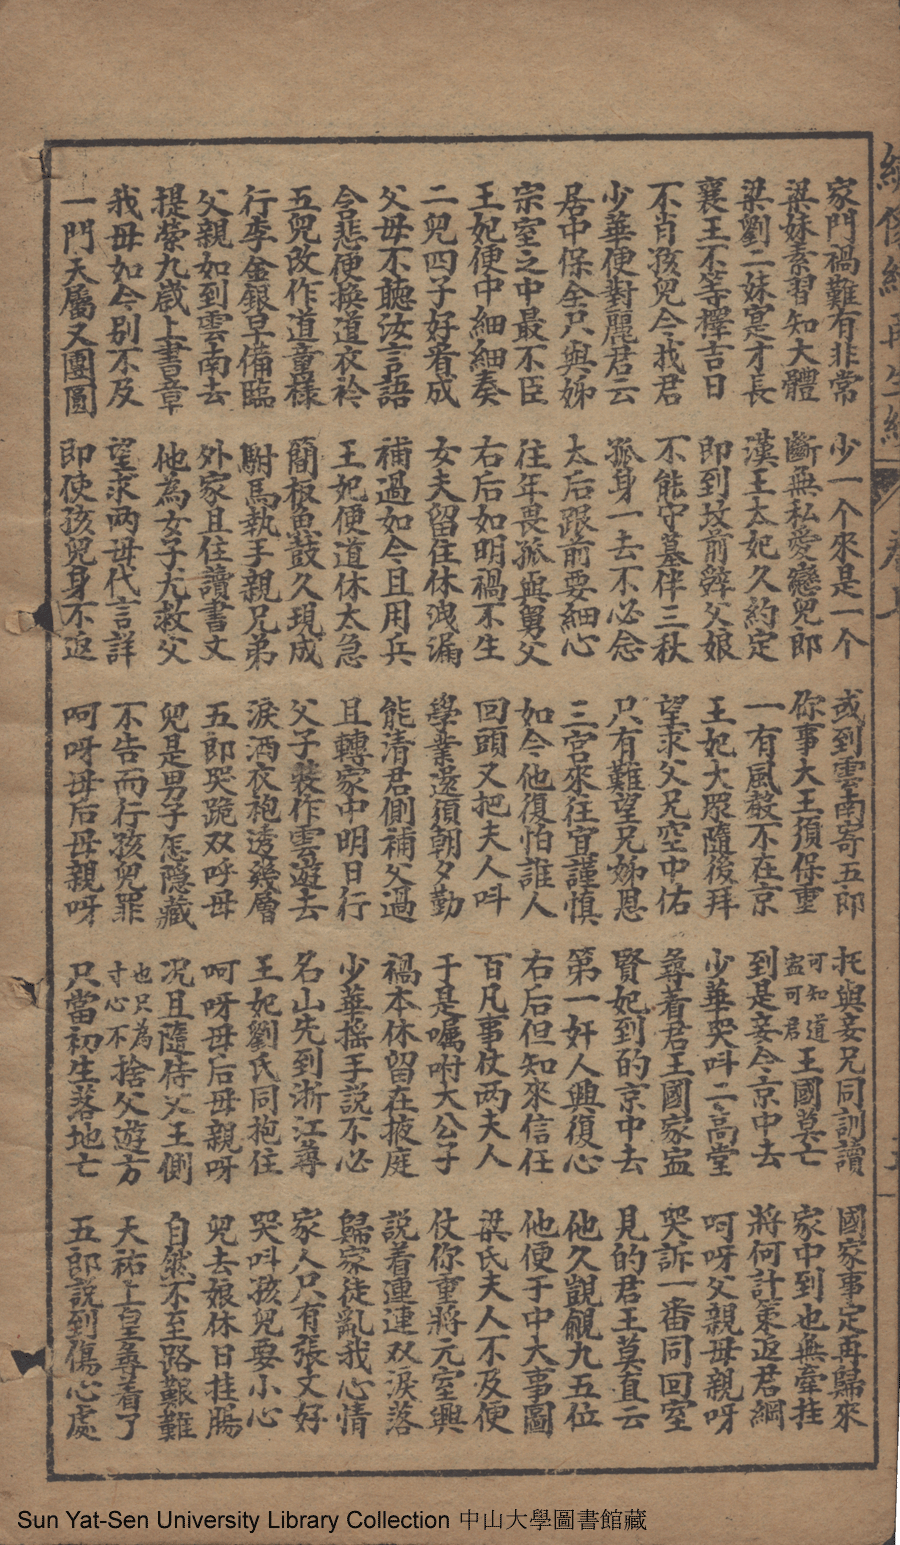 家門禍難有非常 少一个來是一个 或到雲南寄五郎 托與妾兄同訓讀 國家事定再歸來
梁妹素習知大體 斷無私愛戀兒郎 你事大王須保重 可知道寍可君王國莫亡 家中到也無牽挂
梁劉二妹寔才長 漢王太妃久約定 一有風殽不在京 到是妾今京中去 將何計策返君綱
襄王不等擇吉日 即到坟前辤父娘 王妃大眾隨後拜 少華哭呌二高堂 呵呀父親母親呀
不肖孩兒今找君 不能守墓伴三秋 望求父兄空中佑 尋着君王國家寍 哭訴一番同回室
少華便對麗君云 孤身一去不必念 只有難望兄姊恩 賢妃到的京中去 見的君王莫直云
居中保全只與姊 太后跟前要細心 三宮來往宜謹慎 第一奸人興復心 他久覬覦九五位
宗室之中最不臣 往年畏孤與舅父 如今他復怕誰人 右后但知來信任 他便于中大事圖
王妃便中細細奏 右后如明禍不生 回頭又把夫人呌 百凡事仗两夫人 梁氏夫人不及便
二兒四子好看成 女夫留住休洩漏 學業還須朝夕勤 于是囑咐大公子 仗你重將元室興
父母不聽汝言語 補過如今且用兵 能清君側補父過 禍本休留在掖庭 説着連連双淚落
含悲便換道衣衿 王妃便道休太急 且轉家中明日行 少華摇手説不必 歸家徒亂我心情
五兒改作道童樣 簡板魚鼓久現成 父子裝作雲遊去 名山先到浙江尋 家人只有張文好
行李金銀早備臨 駙馬執手親兄弟 淚洒衣袍透幾層 王妃劉氏同抱住 哭呌孩兒要小心
父親如到雲南去 外家且住讀書文 五郎哭跪双呼母 呵呀母后母親呀 兒去娘休日挂腸
提縈九歲上書章 他為女子尤救父 兒是男子怎隐藏 况且隨侍父王側 自然不至路艱難
我母如今别不及 望求两母代言詳 不告而行孩兒罪 也只為寸心不捨父遊方 天祐上皇尋着了
一門天屬又團圓 即使孩兒身不返 呵呀母后母親呀 只當初生落地亡 五郎説到傷心處
Sun Yat-Sen University Library Collection 中山大學圖書館藏